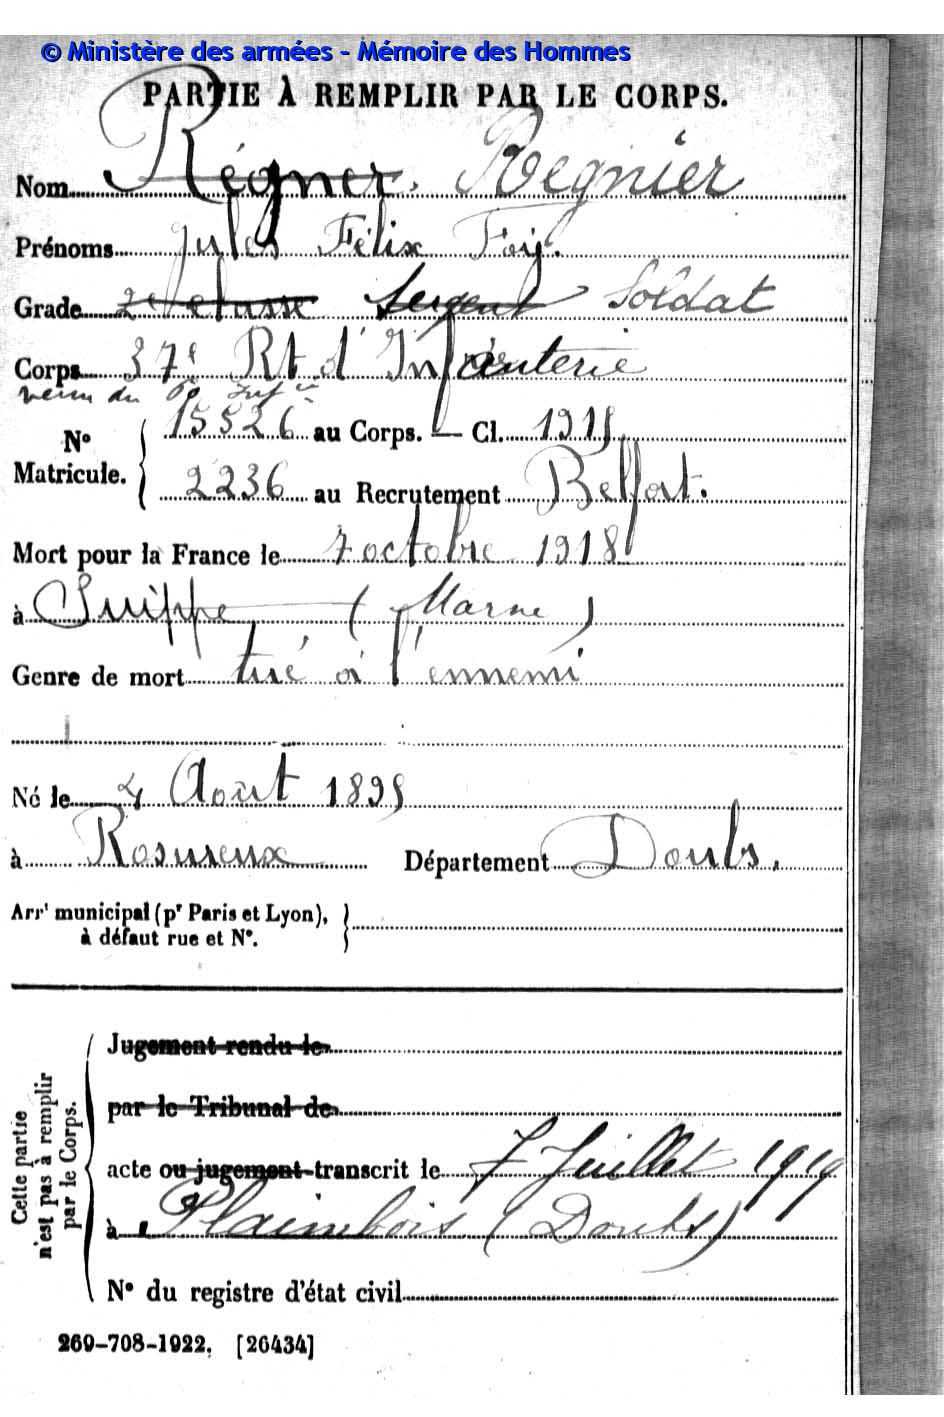 © Ministère des armées - Mémoire des Hommes
PARTIE À REMPLIR PAR LE CORPS.
Nom Régner. Regnier
Prénoms Jules Félix Foy.
Grade 2e classe Sergent Soldat
Corps 37e Rt d'Infanterie
venu du 60 Infie
15526 au Corps. — Cl. 1915
N° Matricule.
2236 au Recrutement Belfort.
Mort pour la France le 7 octobre 1918
à Suippe (Marne)
Genre de mort tué à l'ennemi
Né le 4 Août 1895
à Rosureux Département Doubs.
Arrt municipal (pr Paris et Lyon),
à défaut rue et N°.
Cette partie
n'est pas à remplir
par le Corps.
Jugement rendu le
par le Tribunal de
acte ou jugement transcrit le 7 Juillet 1919
à Plaimbois (Doubs)
N° du registre d'état civil
269-708-1922. [26434]